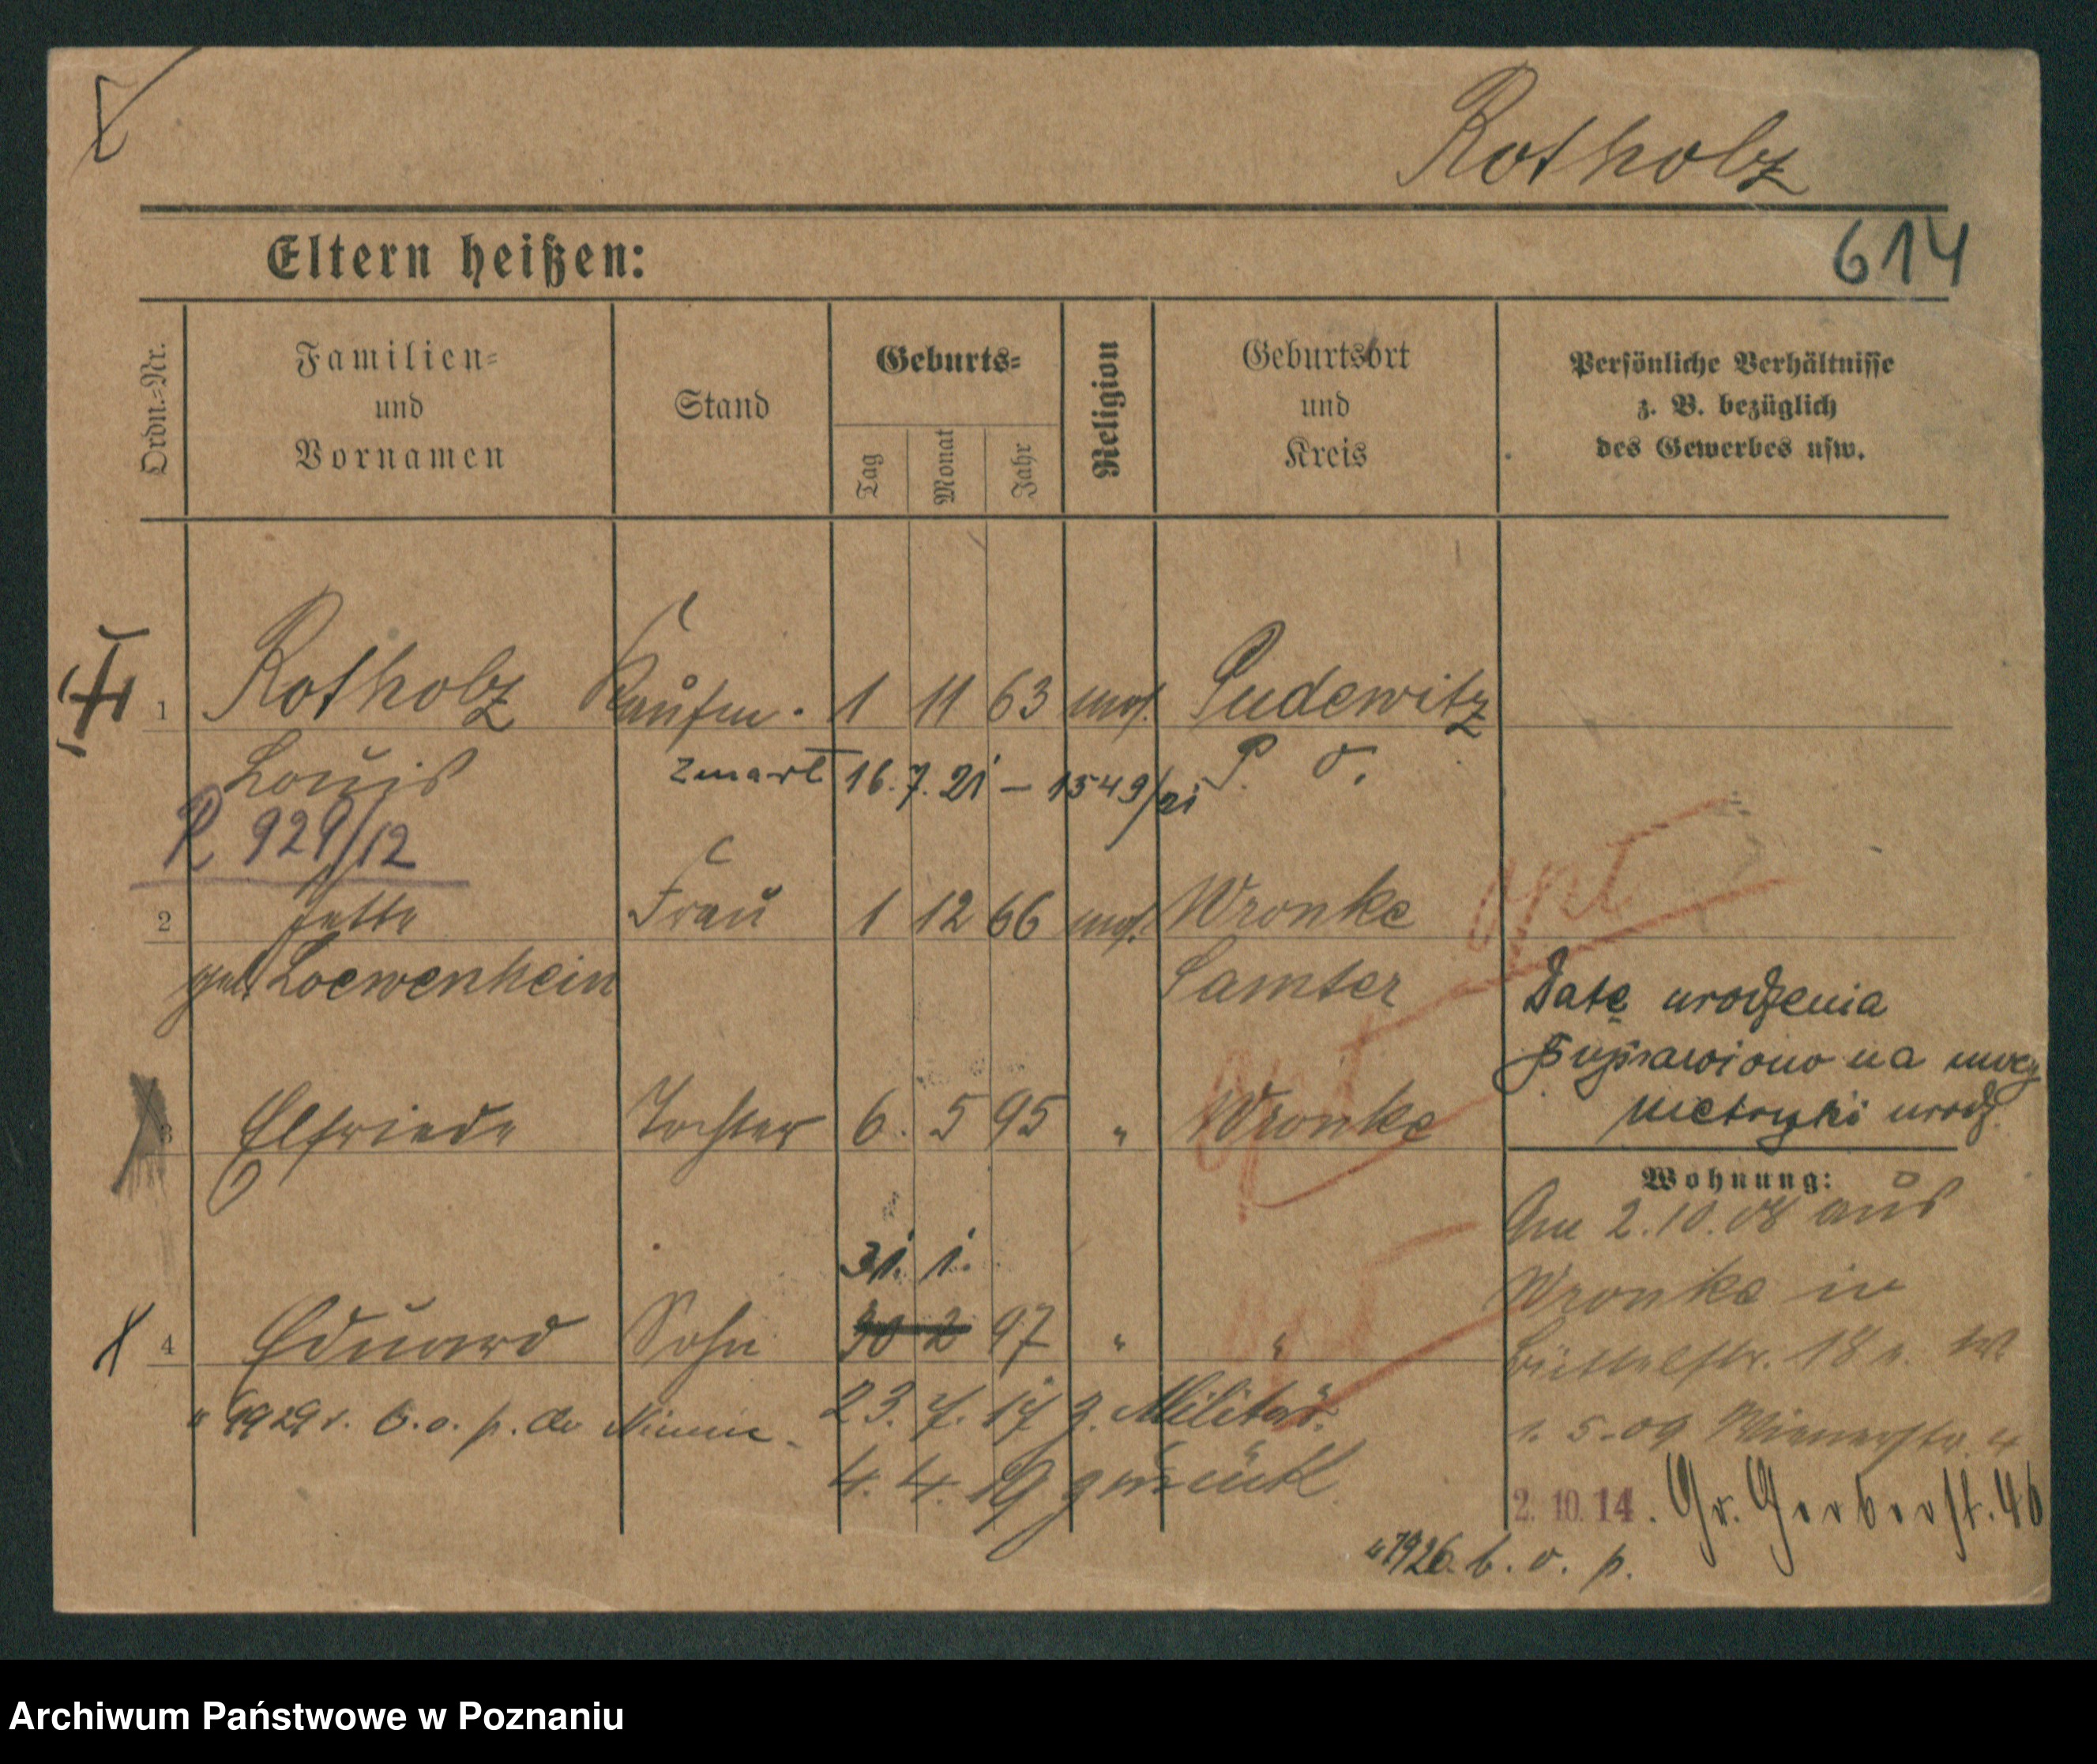 Rotholz
Eltern heißen:
614
Ordn.=Nr.
Familien=
und
Vornamen
Stand
Geburts=
Tag
Monat
Jahr
Religion
Geburtsort
und
Kreis
Persönliche Verhältnisse
z. B. bezüglich
des Gewerbes usw.
1 Rotholz Kaufm. 1 11 63 mos. Pudewitz
Louis zmarł 16.7.21 – 1549/21 P. O.
R 929/12
2 Jette Frau 1 12 66 mos. Wronke
geb. Loewenhein Samter
Datę urodzenia
poprawiono na mocy
metryki urodz.
3 Elfriede Tochter 6. 5 95 " Wronke
Wohnung:
Am 2.10.08 aus
Wronke in
31. 1.
4 Eduard Sohn 30 2 97 " "
18
" 1929 r. b. o. p. 23. 7. 17 z. Militär.
1. 5. 09 Wienerstr. 4
4. 4. 19 zurück
2. 10. 14. Gr. Gerberst. 46
"1926. b. o. p.
Archiwum Państwowe w Poznaniu